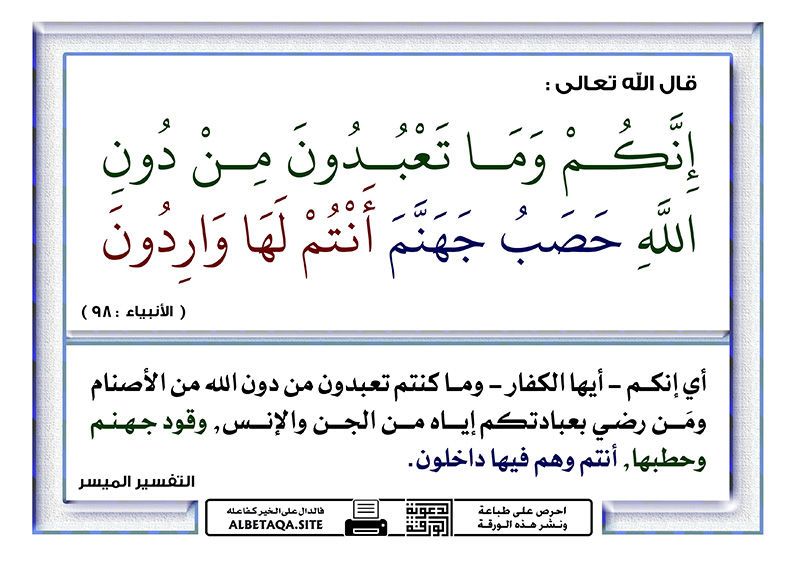 قال الله تعالى :
إِنَّكُمْ وَمَا تَعْبُدُونَ مِنْ دُونِ
اللَّهِ حَصَبُ جَهَنَّمَ أَنْتُمْ لَهَا وَارِدُونَ
( الأنبياء : ٩٨ )
أي إنكم - أيها الكفار - وما كنتم تعبدون من دون الله من الأصنام
ومَن رضي بعبادتكم إياه من الجن والإنس, وقود جهنم
وحطبها, أنتم وهم فيها داخلون.
التفسير الميسر
احرص على طباعة
ونشر هذه الورقة
الدعوية
الورقة
فالدال على الخير كفاعله
ALBETAQA.SITE